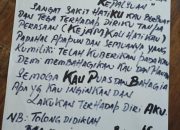 KEPALSUAN
SANGAT SAKIT HATIKU KAU BERBUAT
DAN TEGA TERHADAP DIRIKU TANPA
PERASAAN (KEJAM KALI HATI KAU)
PADAHAL APAPUN DAN SEMUANYA YANG
KUMILIKI TELAH KUBERIKAN PADA
DEMI MEMBAHAGIAKAN KAU DAN
SEMOGA KAU PUAS DAN BAHAGIA
APA YG KAU INGINKAN DAN
LAKUKAN TERHADAP DIRI AKU.
NB: TOLONG DIDIKLAH